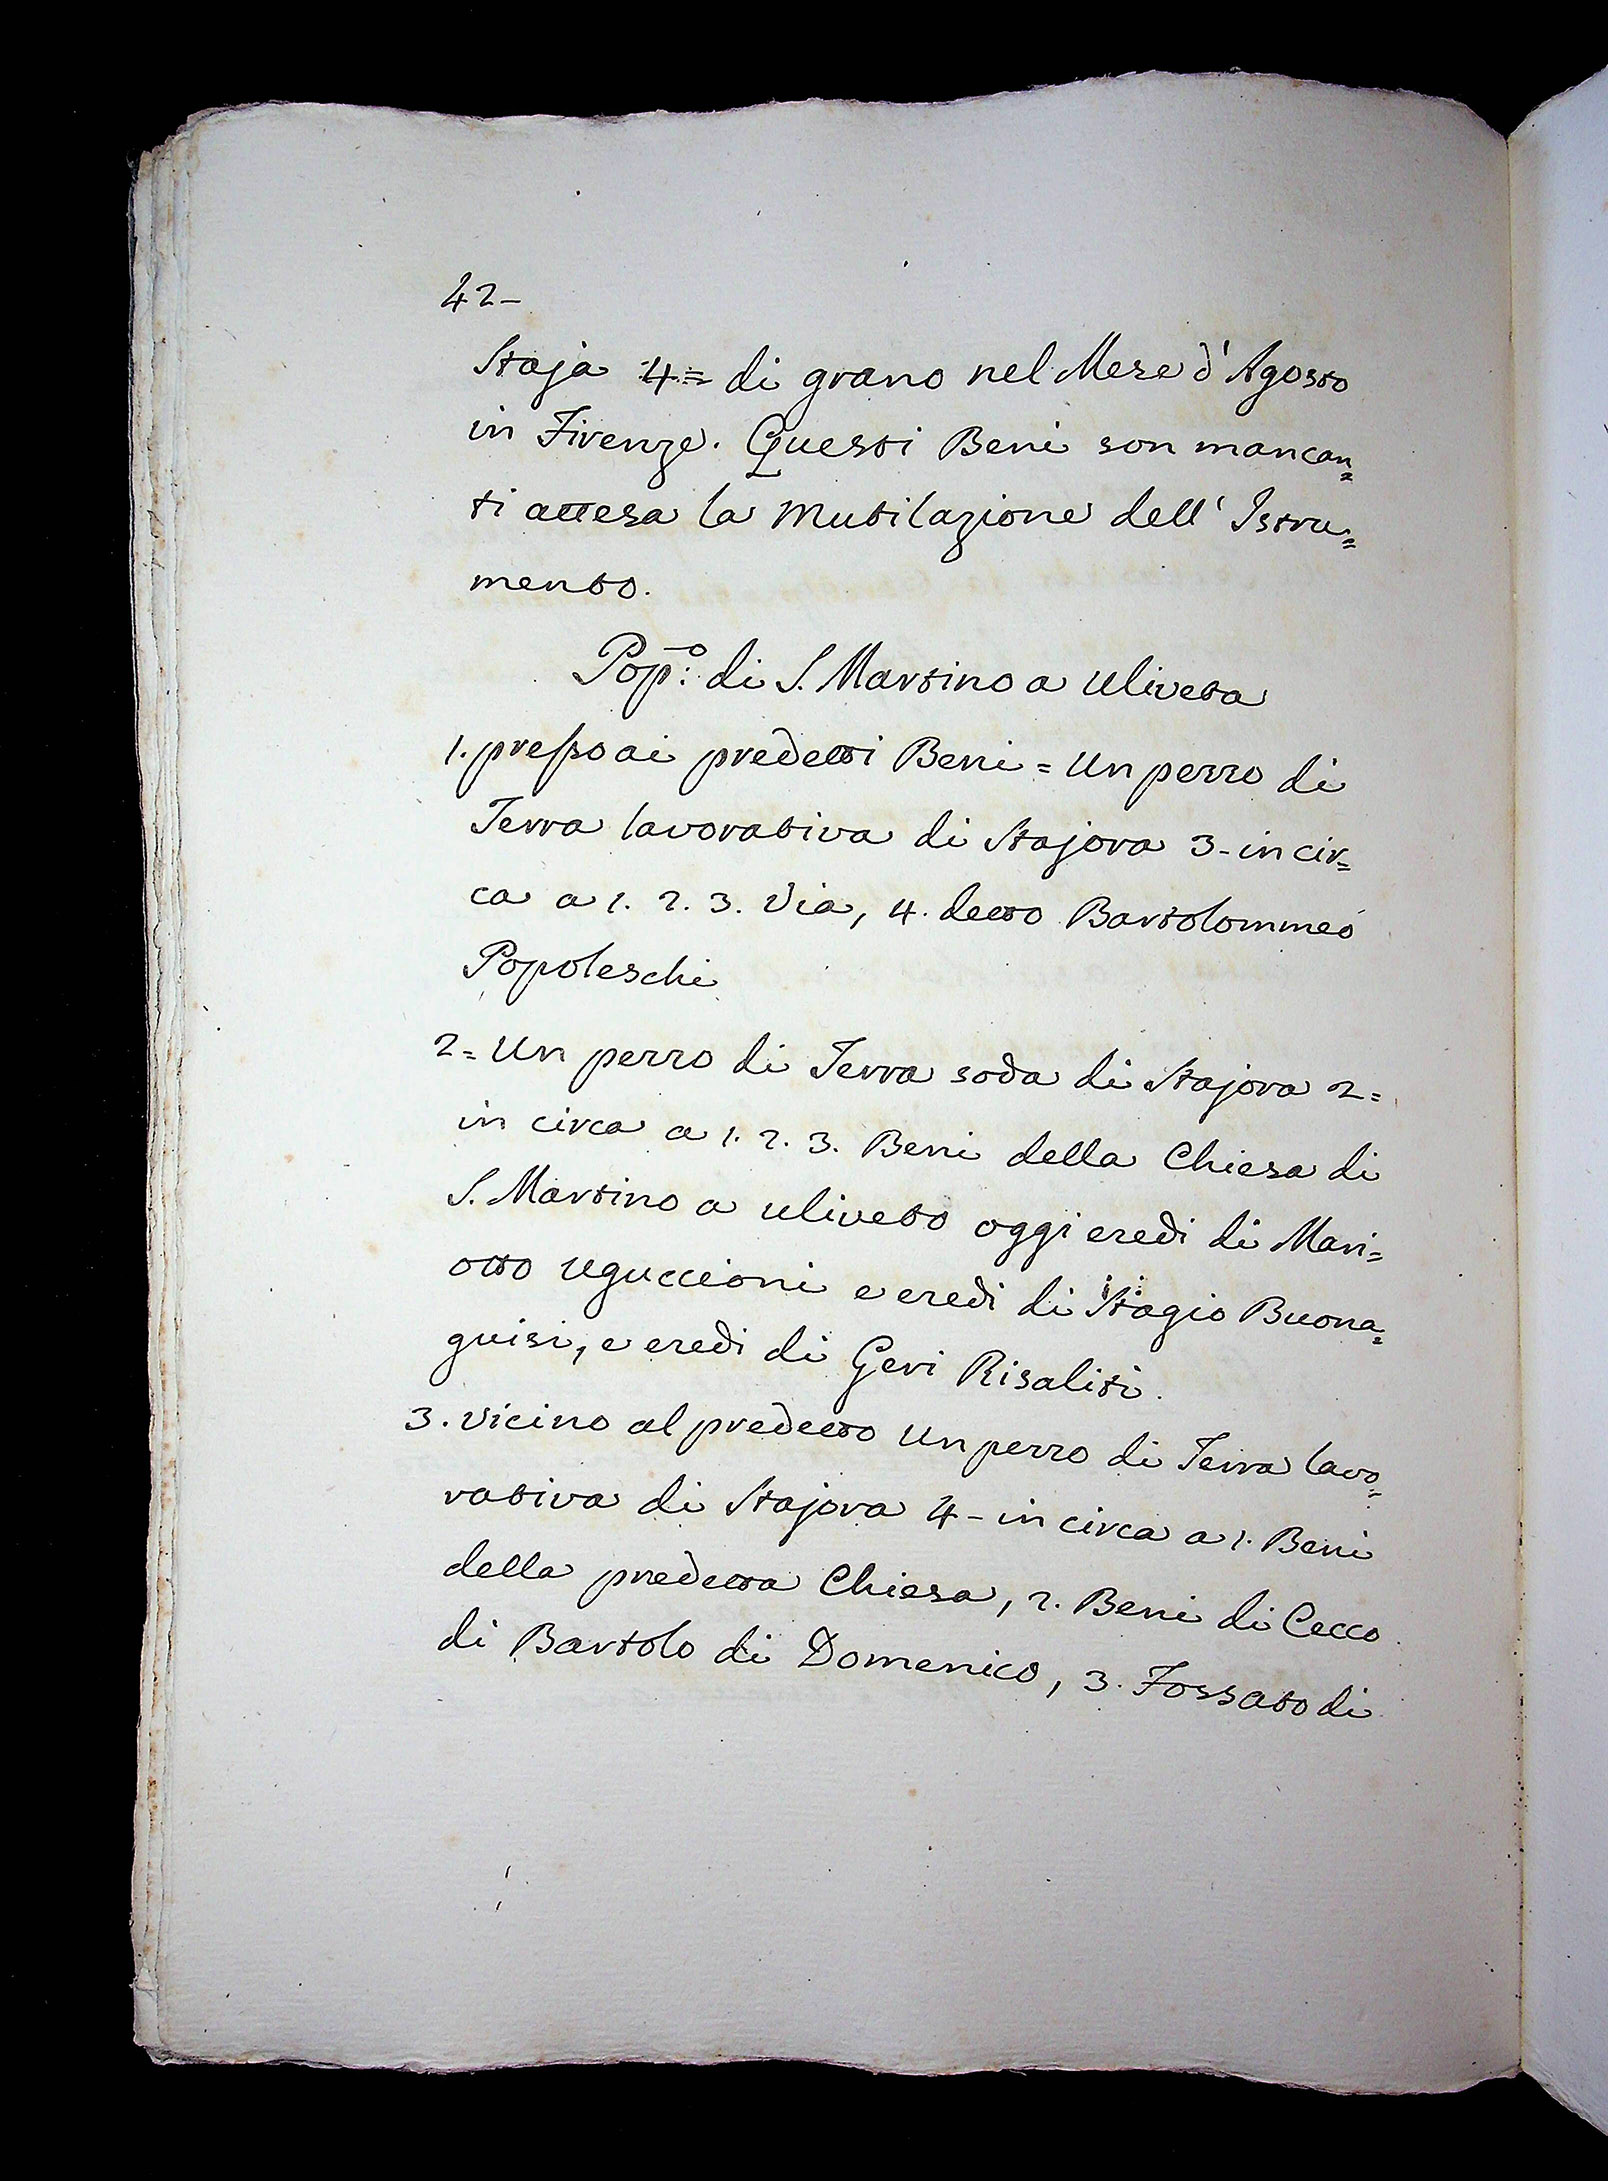 42-
Staja 4= di grano nel Mese d'Agosto
in Firenze. Questi Beni son mancan=
ti attesa la Mutilazione dell' Istru=
mento.
Pop:º di S. Martino a Uliveta
1. presso ai predetti Beni = Un pezzo di
Terra lavorativa di Stajora 3- in cir=
ca a 1. 2. 3. Via, 4. detto Bartolommeo
Popoleschi
2= Un pezzo di Terra soda di Stajora 2=
in circa a 1. 2. 3. Beni della Chiesa di
S. Martino a Uliveto oggi eredi di Mari=
otto Uguccioni e eredi di Stagio Buona=
guisi, e eredi di Geri Risaliti.
3. Vicino al predetto Un pezzo di Terra lavo=
rativa di Stajora 4- in circa a 1. Beni
della predetta Chiesa, 2. Beni di Cecco
di Bartolo di Domenico, 3. Fossato di